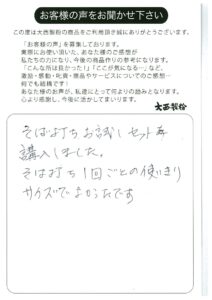 お客様の声をお聞かせ下さい
この度は大西製粉の商品をご利用頂き誠にありがとうございます。
「お客様の声」を募集しております。
実際にお使い頂いた、あなた様のご感想が
私たちの力になり、今後の商品作りの参考になります。
「こんな所は良かった!」「ここが気になる…」など、
激励・感動・叱責・商品やサービスについてのご感想…
何でも結構です!
あなた様のお声が、私達にとって何よりの励みとなります。
心より感謝し、今後に活かしてまいります。
大西製粉
そば打ちお試しセットを
購入しました。
そば打ち1回ごとの使いきり
サイズでよかったです